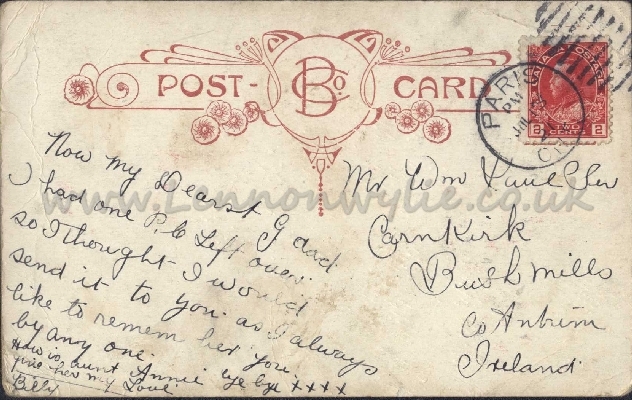 POST- B Co. CARD
CANADA POSTAGE
2 TWO CENTS 2
PARIS
PM
JUL
Now my Dearst G dad
I had one P.C Left over
so I thought I would
send it to you as I always
like to remem ber you
by any one.
How is aunt Annie bye bye xxxx
give her my Love
Billy
Mr Wm
Carnkirk
Bushmills
Co Antrim
Ireland
www.Lennonwylie.co.uk